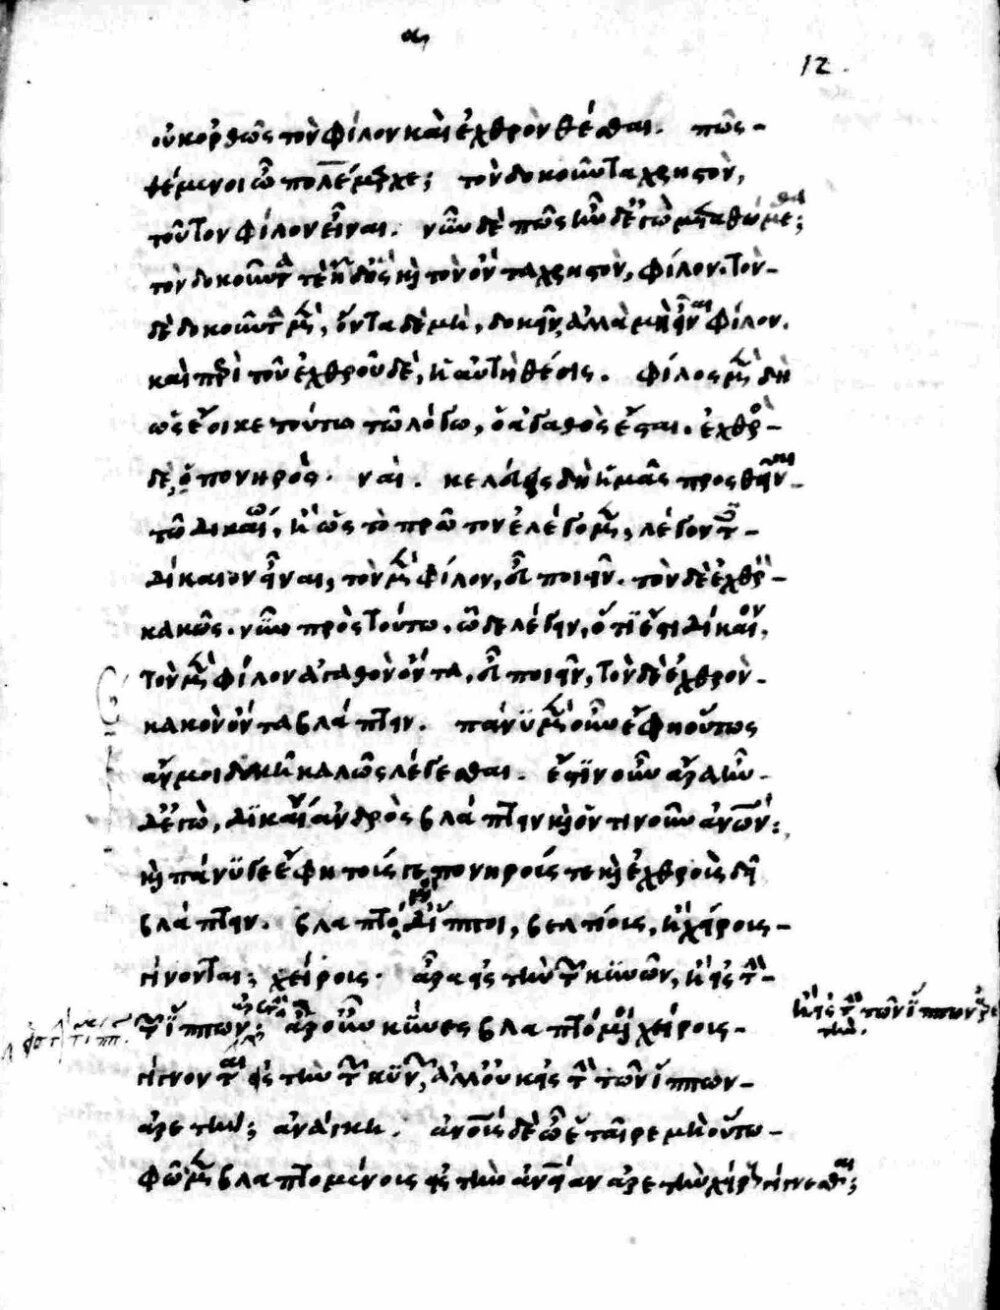 α
12.
οὐκ ὀρθῶς τὸν φίλον καὶ ἐχθρὸν θέσθαι. πῶς
θέμενοι ὦ πολέμαρχε; τὸν δοκοῦντα χρηστὸν,
τοῦτον φίλον εἶναι. νῦν δὲ πῶς ἦν δ' ἐγὼ μεταθώμεθα;
τὸν δοκοῦντά τε ἦ δ' ὃς καὶ τὸν ὄντα χρηστὸν, φίλον. τὸν
δὲ δοκοῦντα μὲν, ὄντα δὲ μὴ, δοκεῖν ἀλλὰ μὴ εἶναι φίλον.
καὶ περὶ τοῦ ἐχθροῦ δὲ, ἡ αὐτὴ θέσις. φίλος μὲν δὴ
ὡς ἔοικε τούτω τῶ λόγω, ὁ ἀγαθὸς ἔσται. ἐχθρὸς
δὲ, ὁ πονηρός. ναί. κελεύεις δὴ ἡμᾶς προσθεῖναι
τῶ δικαίω, ἢ ὡς τὸ πρῶτον ἐλέγομεν, λέγοντες
δίκαιον εἶναι, τὸν μὲν φίλον, εὖ ποιεῖν. τὸν δὲ ἐχθρὸν
κακῶς. νῦν πρὸς τούτω. ὧδε λέγειν, ὅτι ἔστι δίκαιον,
τὸν μὲν φίλον ἀγαθὸν ὄντα, εὖ ποιεῖν, τὸν δὲ ἐχθρὸν
κακὸν ὄντα βλάπτειν. πάνυ μὲν οὖν ἔφη οὕτως
ἄν μοι δοκεῖ καλῶς λέγεσθαι. ἔστιν οὖν ἄρα ἦν
δ' ἐγὼ, δικαίου ἀνδρὸς βλάπτειν καὶ ὁντινοῦν ἀνθρώπων;
καὶ πάνυ γε ἔφη τούς γε πονηρούς τε καὶ ἐχθροὺς δεῖ
βλάπτειν. βλαπτόμενοι δ' ἵπποι, βελτίους, ἢ χείρους
γίνονται; χείρους. ἆρα εἰς τὴν τῶν κυνῶν, ἢ εἰς τὴν
τῶν ἵππων; ἆρ' οὖν κύνες βλαπτόμενοι χείρους
ἢ εἰς τὴν τῶν ἵππων ἀρετήν.
γίνονται εἰς τὴν τῶν κυνῶν, ἀλλ' οὐκ εἰς τὴν τῶν ἵππων
ἀρετήν; ἀνάγκη. ἀνθρώπους δὲ ὦ ἑταῖρε μὴ οὕτω
φῶμεν βλαπτομένους εἰς τὴν ἀνθρωπείαν ἀρετὴν χείρους γίγνεσθαι;